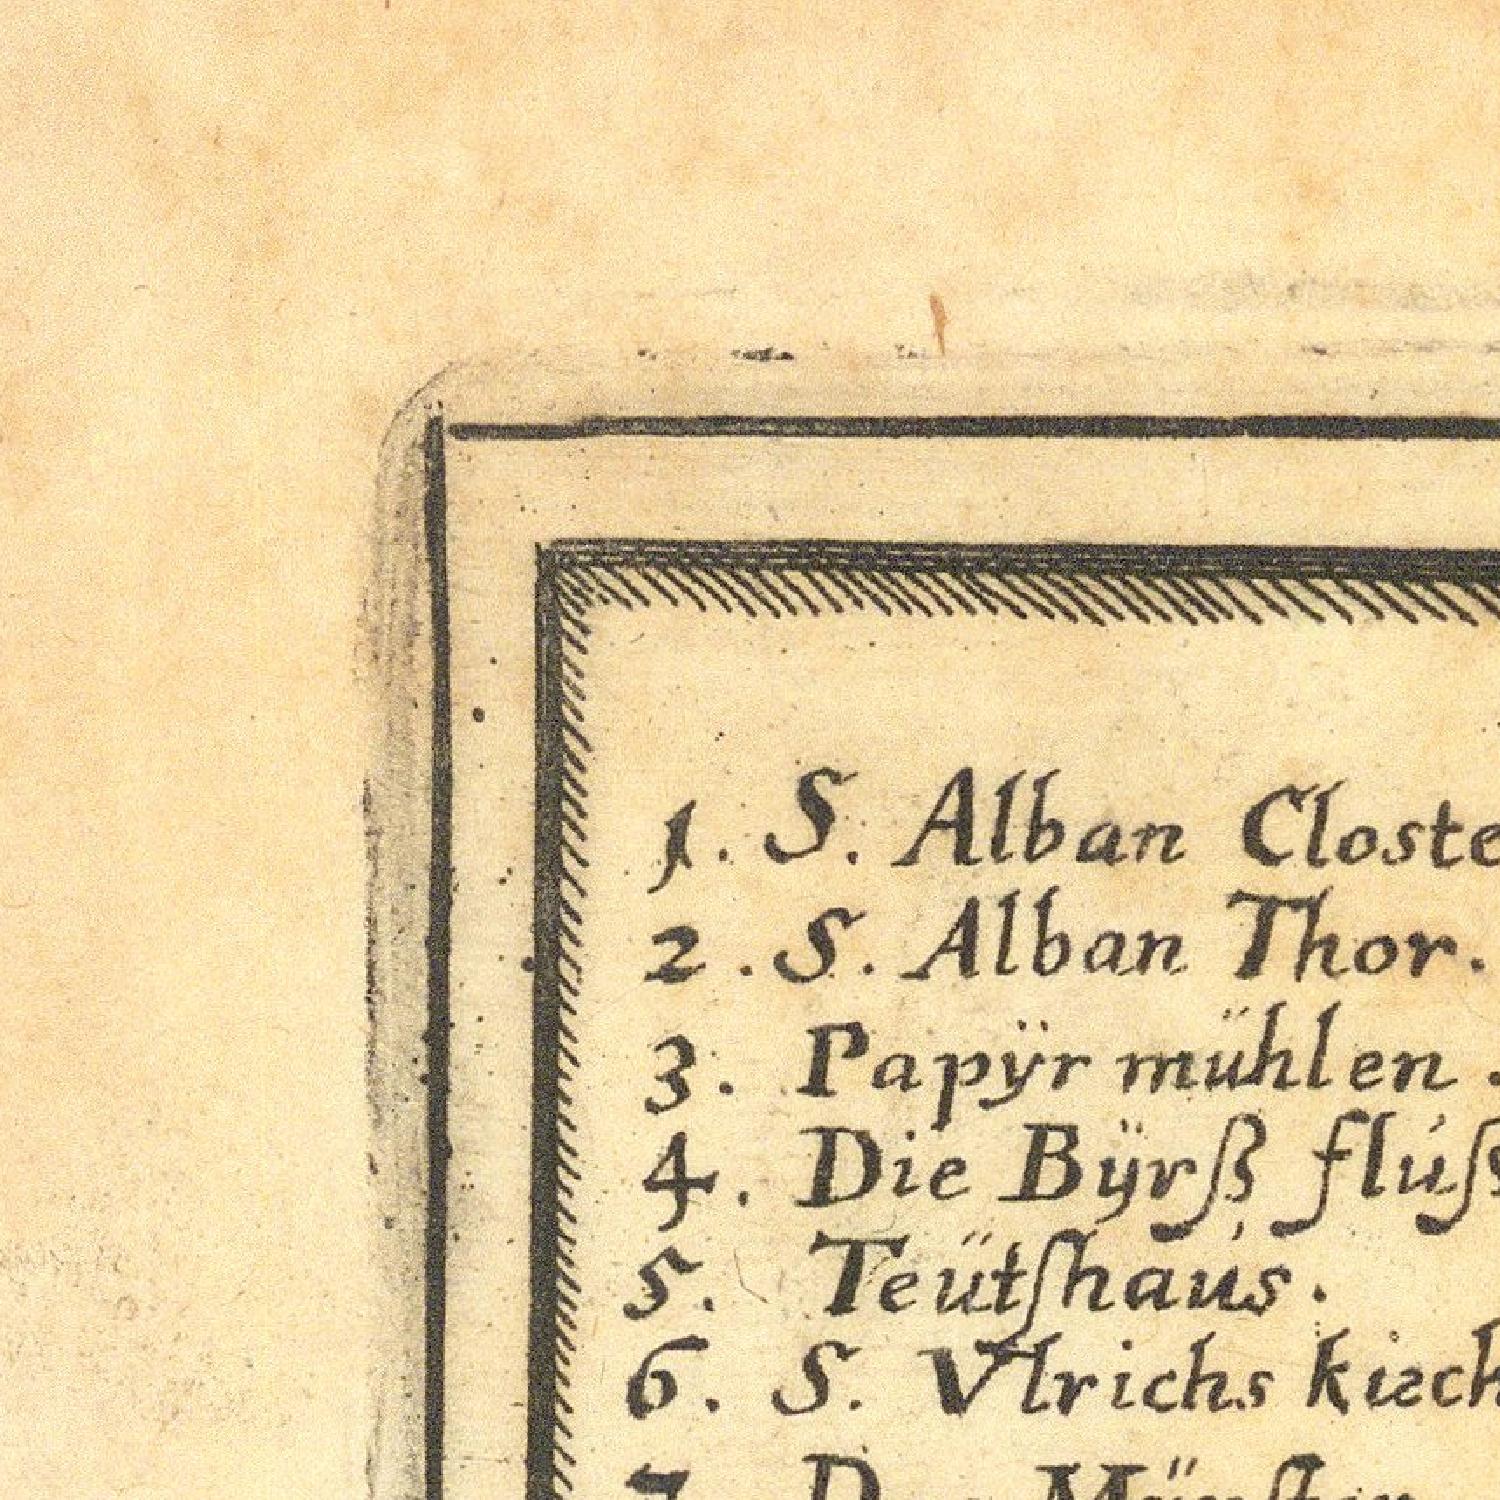 1. S. Alban Closte
2. S. Alban Thor.
3. Papÿr mühlen.
4. Die Bÿrß flúß
5. Teütſhaús.
6. S. Vlrichs kirch
7. D